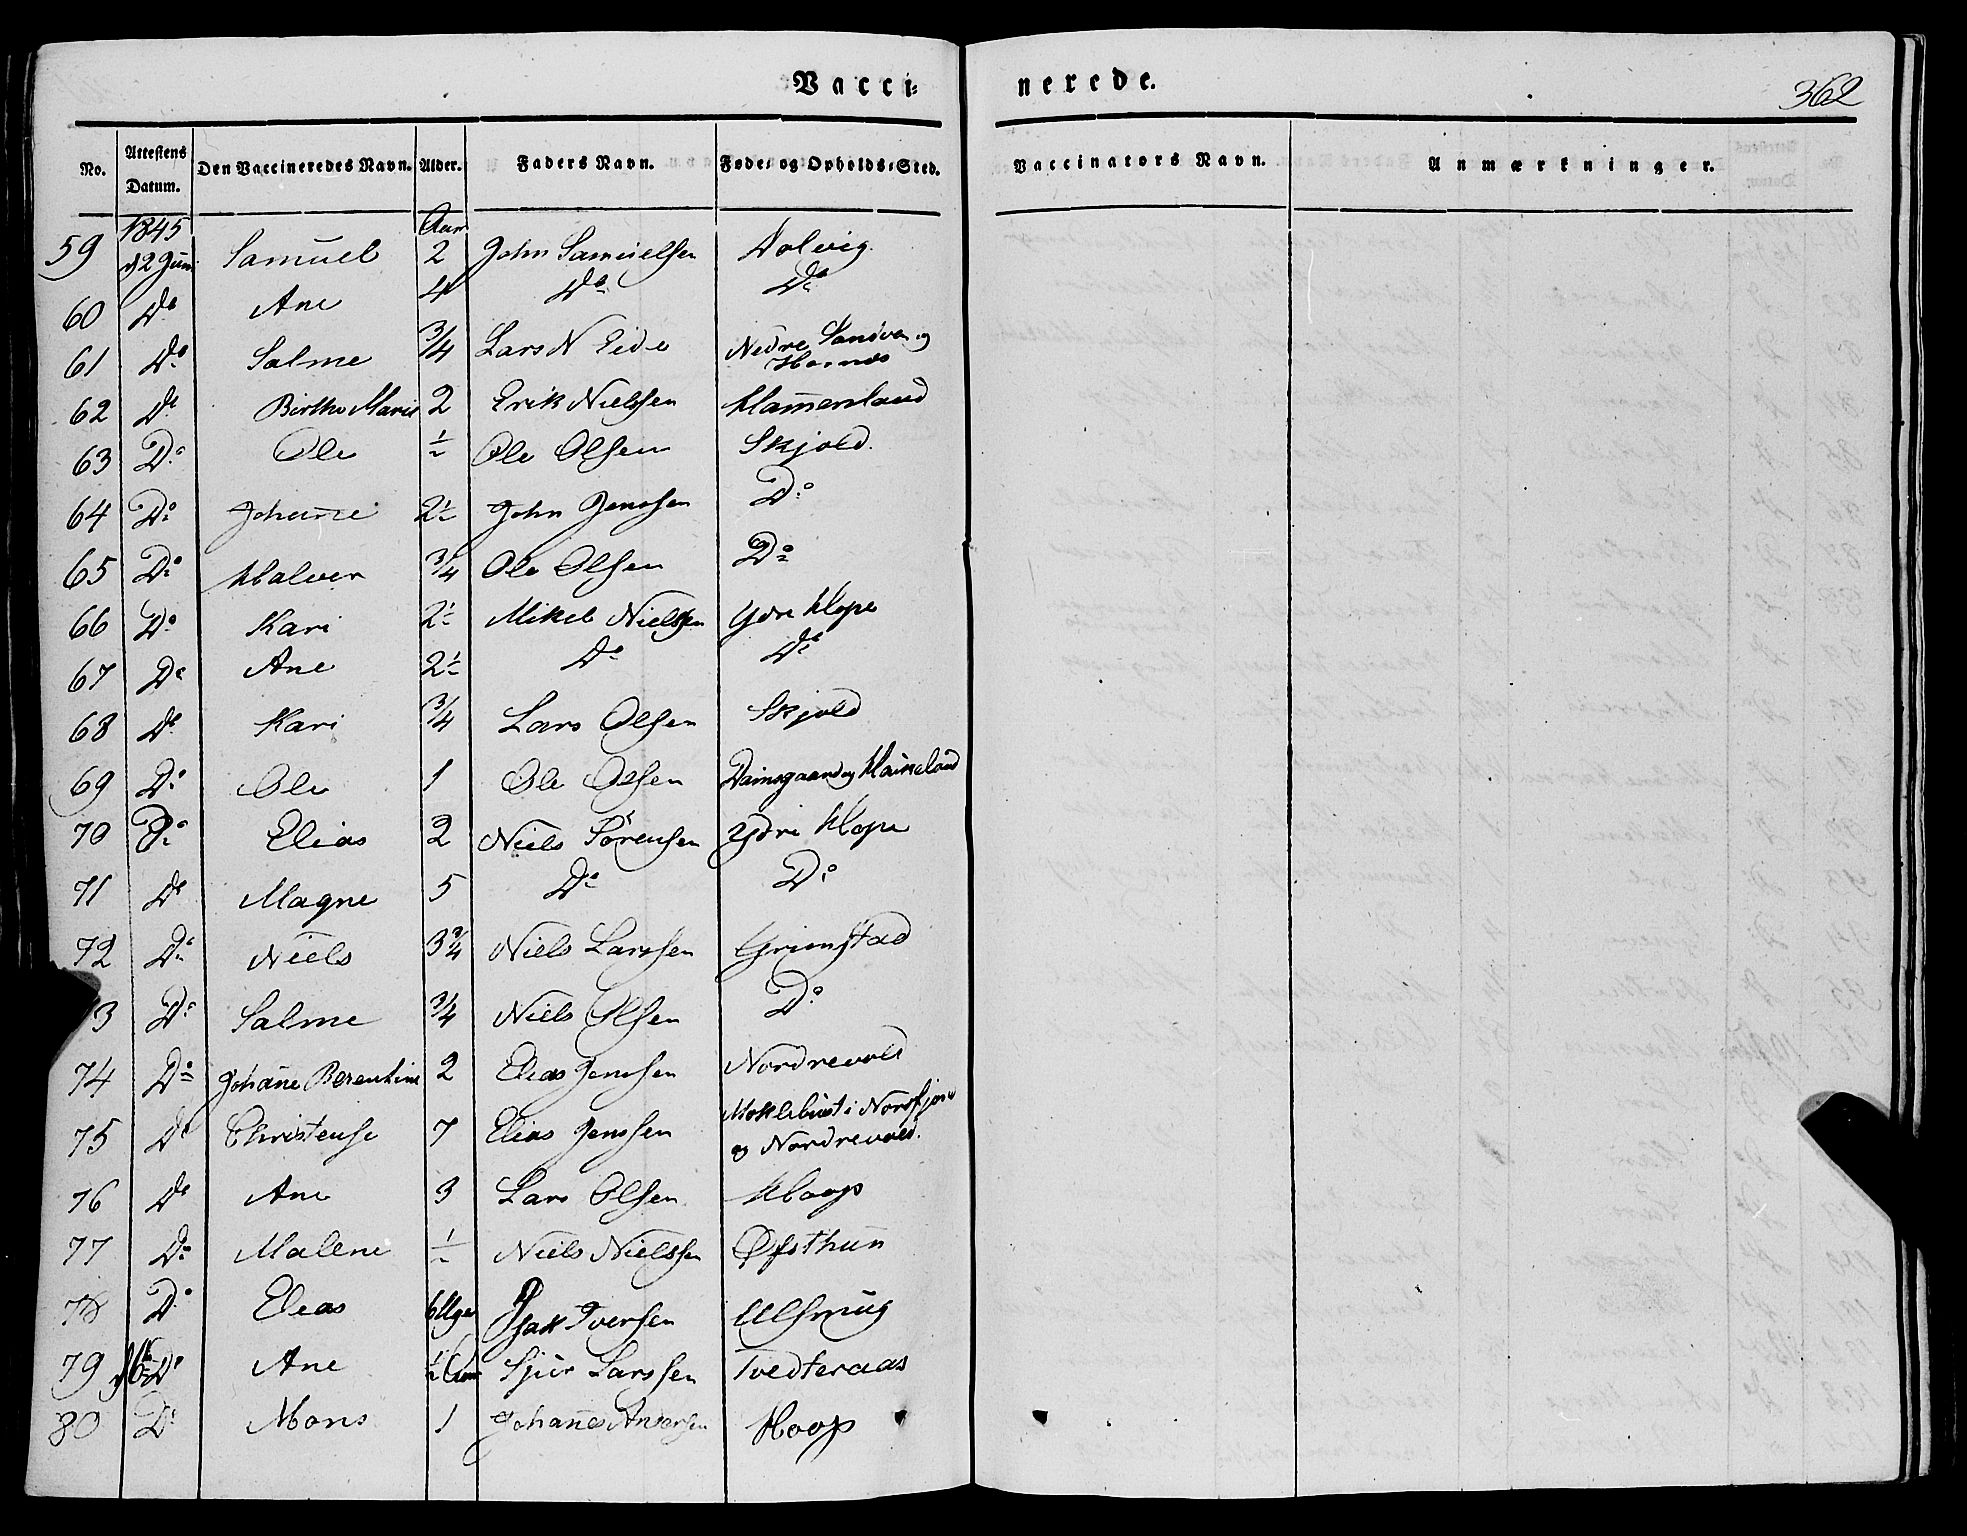 Vacci- nerede. 362
No. Attestens Datum. Den Vaccineredes Navn. Alder. Faders Navn. Føde- og Opholds-Sted. Vaccinators Navn. Anmærkninger.
1845 Aar
59 d 2 Juni Samuel 2 John Samuelsen Dolvig.
60 Do Ane 4 Do Do
61 Do Salme 3/4 Lars N Eide Nedre Sandven og
Hornnes
62 Do Birthe Marie 2 Erik Nielssen Hammersland
63 Do Ole 1/2 Ole Olsen Skjold.
64 Do Johanne 2 1/2 John Jenssen Do
65 Do Halver 3/4 Ole Olsen Do
66 Do Kari 2 1/2 Mikel Nielssen Ydre Hope
67 Do Ane 2 1/2 Do Do
68 Do Kari 3/4 Lars Olsen Skjold
69 Do Ole 1 Ole Olsen Damsgaard og Haukeland
70 Do Elias 2 Niels Sørensen Ydre Hope
71 Do Magne 5 Do Do
72 Do Niels 3 3/4 Niels Larssen Grimstad
3 Do Salme 3/4 Niels Olsen Do
74 Do Johanne Berentine 2 Elias Jenssen Nordrevold
75 Do Christense 7 Elias Jenssen Moklebust i Nordfjord
og Nordrevold.
76 Do Ane 3 Lars Olsen Hoop
77 Do Malene 1/2 Niels Nielssen Øfsthun
78 Do Elias 6 Uger Isak Iversen Ulsmug
79 d 16 Do Ane 1/2 Aar Sjur Larssen Tvedteraas
80 Do Mons 1 Johannes Andersen Hoop